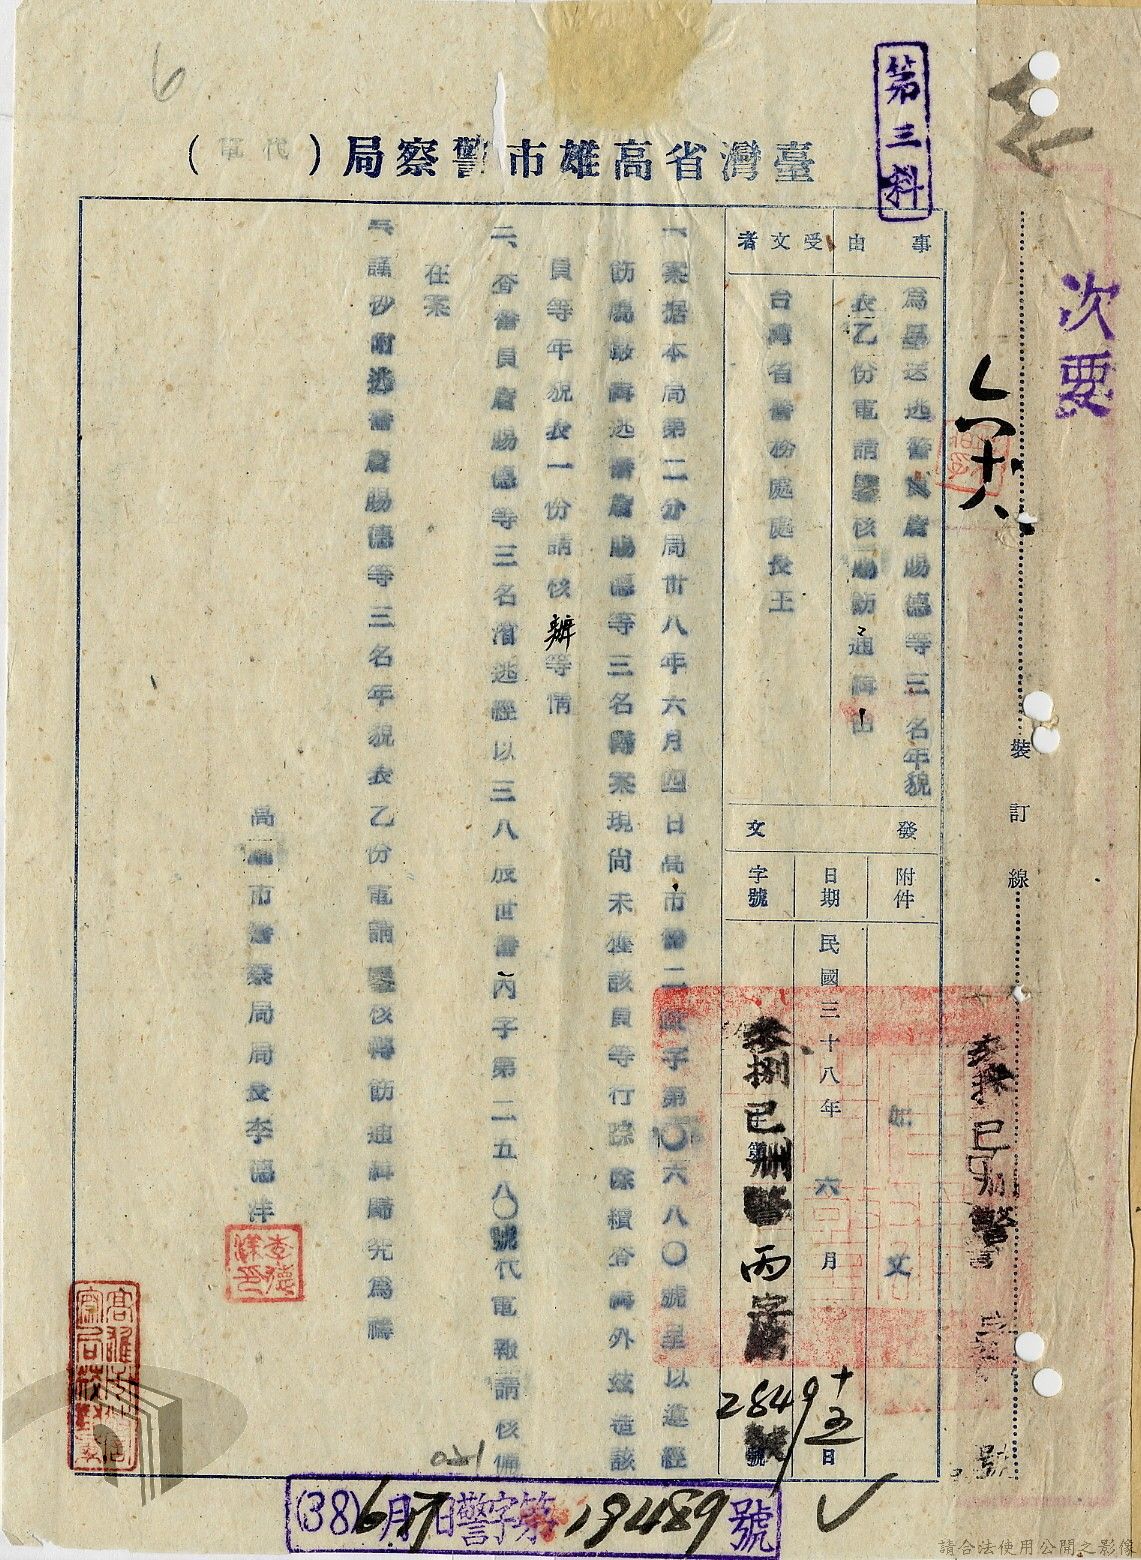 6
第三科
臺灣省高雄市警察局（代電）
次要
六十八
裝訂線
事由
為呈送逃警員盧賜德等三名年貌
表乙份電請鑒核賜飭通緝由
受文者
台灣省警務處處長王
發文
附件
如文
日期
民國三十八年六月十五日
字號
叁捌已删警丙字第
2849號
一、案据本局第二分局卅八年六月四日高市警二政字第〇六八〇號呈以遵經
飭屬嚴緝逃警盧賜德等三名歸案現尚未獲該員等行踪除續查緝外玆造該
員等年貌表一份請核辦等情
二、查警員盧賜德等三名潛逃經以三八辰世警丙字第二五八〇號代電報請核備
在案
三、謹抄附逃警盧賜德等三名年貌表乙份電請鑒核轉飭通緝歸究為禱
高雄市警察局局長李德洋
李德洋印
高雄市警察局校對章
(38)6月17日警字第19489號
號
請合法使用公開之影像